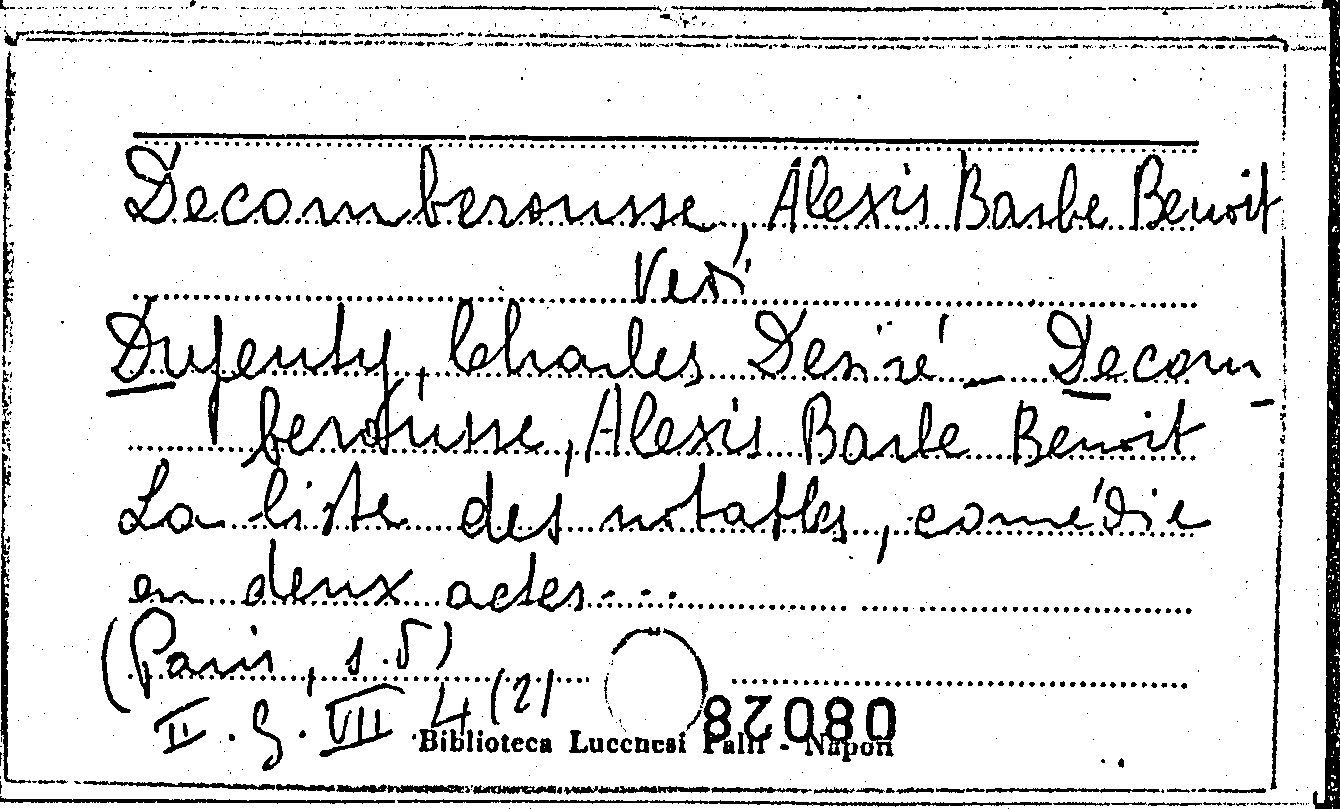 Decomberousse, Alexis Barbe Benoit
Vedi
Dupeuty, Charles Desiré - Decom-
berousse, Alexis Barbe Benoit
La liste des notables, comédie
en deux actes...
(Paris, s.d)
II. G. VII 4 (2)
08028
Biblioteca Lucchesi Palli - Napoli